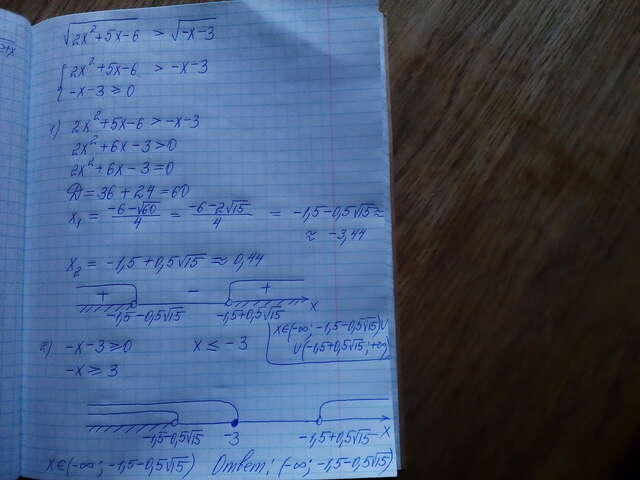 √2x²+5x-6 > √-x-3
{ 2x²+5x-6 > -x-3
-x-3 ≥ 0
1) 2x²+5x-6 > -x-3
2x²+6x-3>0
2x²+6x-3=0
D=36+24=60
x₁ = (-6-√60)/4 = (-6-2√15)/4 = -1,5-0,5√15 ≈
≈ -3,44
x₂ = -1,5+0,5√15 ≈ 0,44
+ - +
-1,5-0,5√15 -1,5+0,5√15 x
x∈(-∞; -1,5-0,5√15)∪
∪(-1,5+0,5√15; +∞)
2) -x-3≥0 x ≤ -3
-x ≥ 3
-1,5-0,5√15 -3 -1,5+0,5√15 x
x∈(-∞; -1,5-0,5√15) Ответ: (-∞; -1,5-0,5√15)